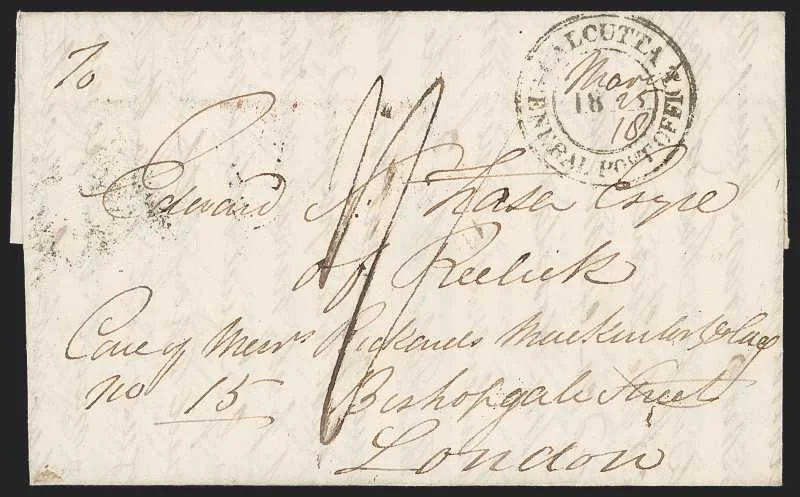 To
CALCUTTA
GENERAL POST OFFICE
Mar
18 25
18
Edward S. Fraser Esqre
of Reelick
Care of Messrs Rickards Mackintosh &
No 15 Bishopgate Street
London